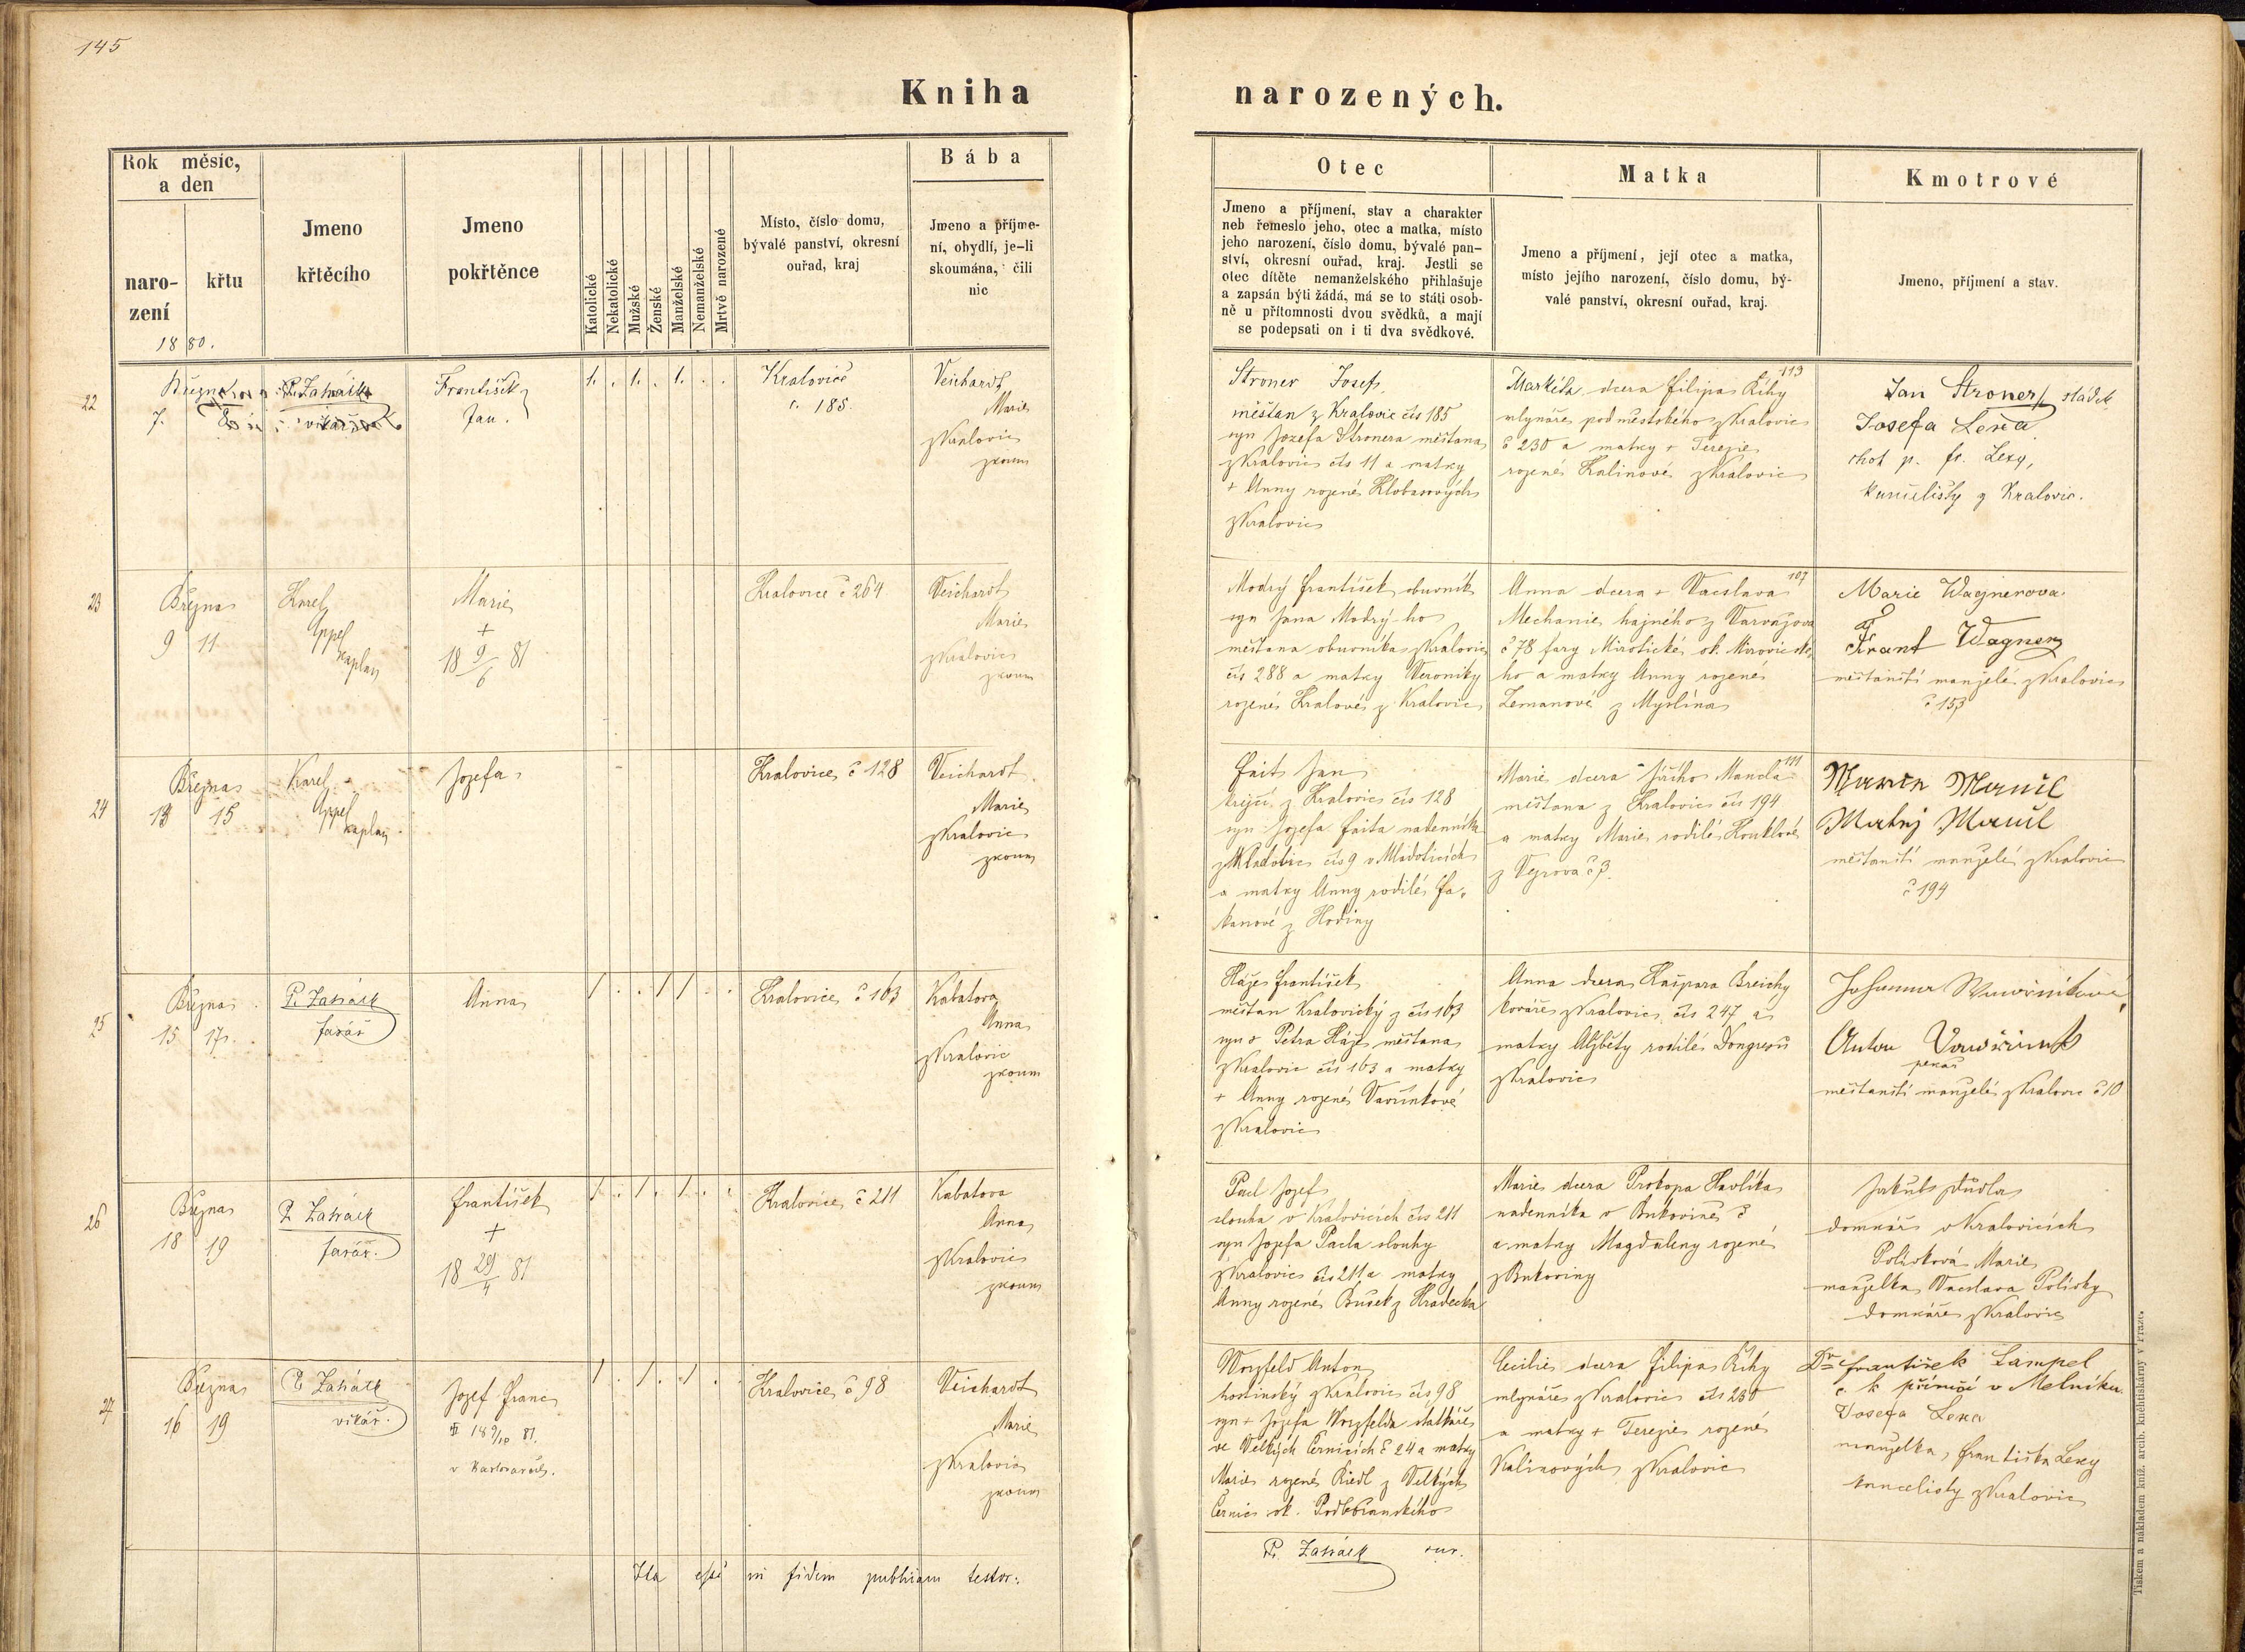 145
Kniha narozených.
Rok měsíc,
a den
naro-
zení
křtu
1880.
Jmeno
křtěcího
Jmeno
pokřtěnce
Katolické
Nekatolické
Mužské
Ženské
Manželské
Nemanželské
Mrtvě narozené
Místo, číslo domu,
bývalé panství, okresní
ouřad, kraj
Bába
Jmeno a příjme-
ní, obydlí, je-li
skoumána, čili
nic
Otec
Jmeno a příjmení, stav a charakter
neb řemeslo jeho, otec a matka, místo
jeho narození, číslo domu, bývalé pan-
ství, okresní ouřad, kraj. Jestli se
otec dítěte nemanželského přihlašuje
a zapsán býti žádá, má se to státi osob-
ně u přítomnosti dvou svědků, a mají
se podepsati on i ti dva svědkové.
Matka
Jmeno a příjmení, její otec a matka,
místo jejího narození, číslo domu, bý-
valé panství, okresní ouřad, kraj.
Kmotrové
Jmeno, příjmení a stav.
22
Března
7.
František
Jan.
1. . 1. . 1. . .
Kralovice
č. 185.
Veichardt
Marie
z Kralovic
zkoum
Stroner Josef
měšťan z Kralovic čís 185
syn Jozefa Stronera měšťana
z Kralovic čís 11 a matky
+ Anny rozené Klobasových
z Kralovic
113
Markéta dcera Filipa Říhy
mlynáře podměstského z Kralovic
č 230 a matky + Terezie
rozené Kalinové z Kralovic
Jan Stroner, sládek
Josefa Lexa
choť p. fr. Lexy,
z Kralovic.
23
Března
9 11
Karel
Appel
kaplan
Marie
+
18 9/6 81
Kralovice č 264
Veichardt
Marie
z Kralovic
zkoum
Modrý František obuvník
syn Jana Modrý-ho
měšťana obuvníka z Kralovic
čís 288 a matky Veroniky
rozené Kralové z Kralovic
107
Anna dcera + Vacslava
Mechanie hajného z Varvažova
č 78 fary Mirotické ok. Mirovické-
ho a matky Anny rozené
Zemanové z Myslína
Marie Wagnerova
a
Frant Wagner
měšťanští manželé z Kralovic
č 153
24
Března
13 15
Karel
Appel
kaplan
Jozefa
Kralovice č 128
Veichardt
Marie
z Kralovic
zkoum
Fait Jan
krejčí z Kralovic čís 128
syn Jozefa Faita nadenníka
z Mladotic čís 9 v Mladoticích
a matky Anny rodilé Fa-
kanové z Hodiny
111
Marie dcera Jiřího Mancla
měšťana z Kralovic čís 194
a matky Marie rodilé Houklové
z Vejrova č 3.
Marie Mancl
Matěj Mancl
měšťanští manželé z Kralovic
č 194
25
Března
15 17.
P. Zahrádk
farář
Anna
1 . . 1 1 . .
Kralovice č 163
Kabatova
Anna
z Kralovic
zkoum
Hájs František
měšťan Kralovický z čís 163
syn + Petra Hájs měšťana
z Kralovic čís 163 a matky
+ Anny rozené Vavřinkové
z Kralovic
Anna dcera Kašpara Breichy
kováře z Kralovic čís 247 a
matky Alžběty rodilé
z Kralovic
Anton
pekař
měšťanští manželé z Kralovic č 10
26
Března
18 19
P. Zahrádk
farář.
František
+
18 29/4 81
1 . 1 . 1 . .
Kralovice č 211
Kabatova
Anna
z Kralovic
zkoum
Pacl Jozef
slouha v Kralovicích čís 211
syn Jozefa Pacla slouhy
z Kralovic čís 211 a matky
Anny rozené Bušek z Hradecka
Marie dcera Prokopa Havlíka
nadenníka v Bukovině č
a matky Magdaleny rozené
z Bukoviny
Jakub Pudla
domkář v Kralovicích
Polívková Marie
manželka Vacslava Polívky
domkáře z Kralovic
27
Března
16 19
P. Zahrádk
vikář.
Jozef Franc
18 9/10 81.
v Karlovarech.
1 . 1 . 1 . .
Kralovice č 98
Veichardt
Marie
z Kralovic
zkoum
Worzfeld Anton
hostinský z Kralovic čís 98
syn + Jozefa Worzfelda statkáře
ve Velkých Černicích č 24 a matky
Marie rozené Riedl z Velkých
Černic ok. Podbořanského
Cecilie dcera Filipa Říhy
mlynáře z Kralovic čís 230
a matky + Terezie rozené
Kalinových z Kralovic
Dr František Lampel
c. k. příručí v Mělníku.
Josefa Lexa
manželka Františka Lexy
kancelisty z Kralovic
Ita esse in fidem publicam testor:
P. Zahrádk cur.
Tiskem a nákladem kníž. arcib. knihtiskárny v Praze.